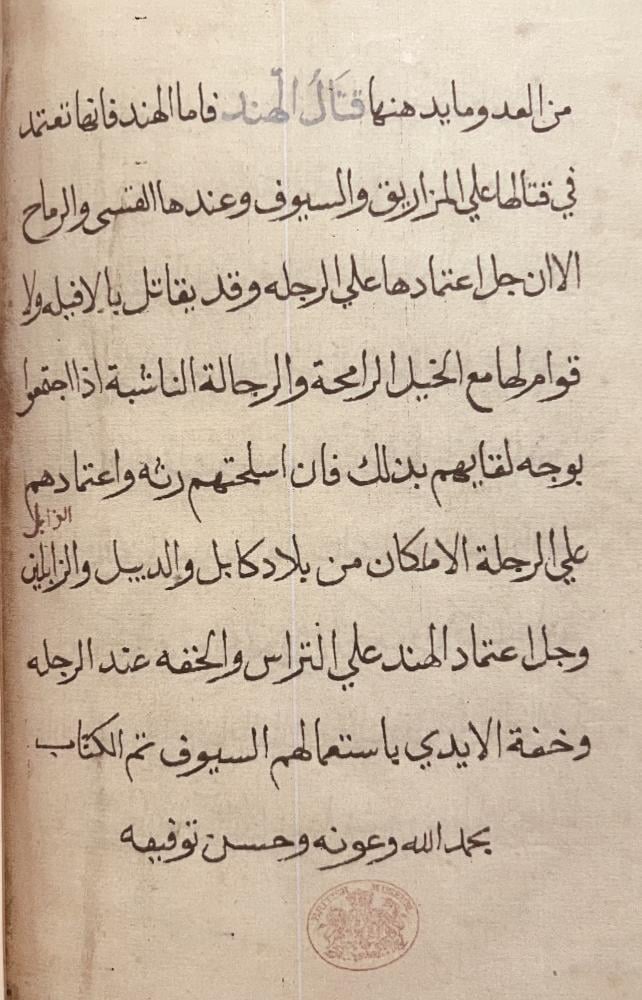 من العدو وما يدهنها قتال الهند فاما الهند فانها تعتمد
في قتالها علي المزاريق والسيوف وعندها القسى والرماح
الا ان جل اعتمادها علي الرجله وقد يقاتل بالافيله ولا
قوام لها مع الخيل الرامحة والرجالة الناشبة اذا اجتمعوا
بوجه لقايهم بذلك فان اسلحتهم رثه واعتمادهم
الزابل
علي الرجلة الا ما كان من بلاد كابل والديبل والزابلين
وجل اعتماد الهند علي التراس والخفه عند الرجله
وخفة الايدي باستعمالهم السيوف تم الكتاب
بحمد الله وعونه وحسن توفيقه
BRITISH MUSEUM